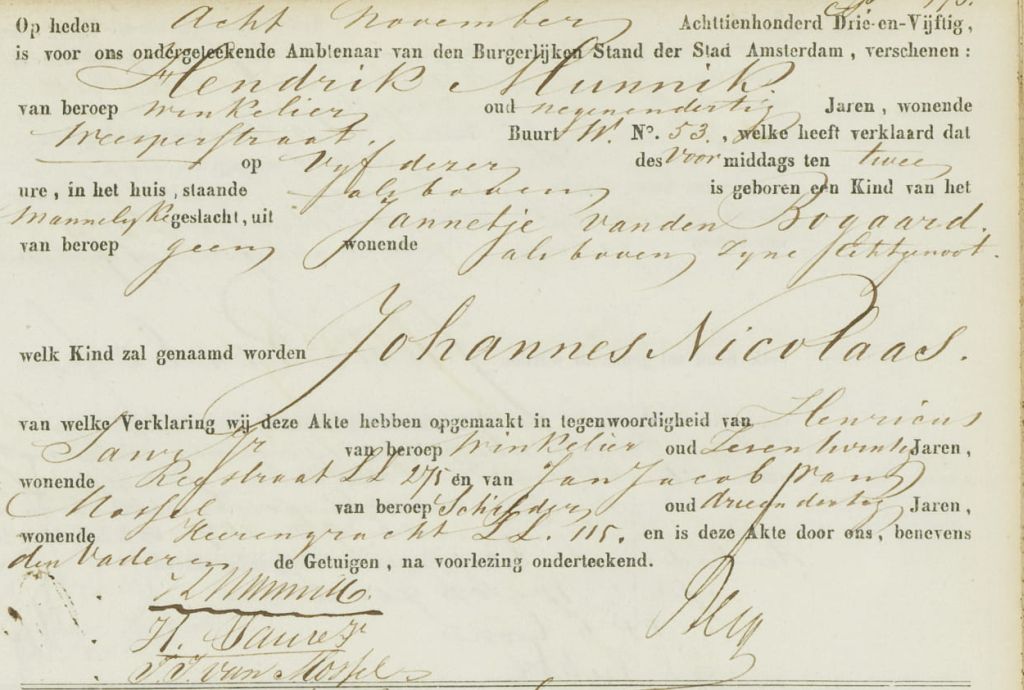 Op heden Acht November Achttienhonderd Drie-en-Vijftig,
is voor ons ondergeteekende Ambtenaar van den Burgerlijken Stand der Stad Amsterdam, verschenen:
Hendrik Munnik.
van beroep winkelier oud negenendertig Jaren, wonende
Weesperstraat. Buurt W. No. 53., welke heeft verklaard dat
op Vijf dezer des Voormiddags ten twee
ure, in het huis, staande als boven is geboren een Kind van het
Mannelijke geslacht, uit Jannetje vanden Bogaard.
van beroep geen wonende als boven zyne Echtgenoot.
welk Kind zal genaamd worden Johannes Nicolaas.
van welke Verklaring wij deze Akte hebben opgemaakt in tegenwoordigheid van Henricus
Jr van beroep Winkelier oud Jaren,
wonende Reestraat LL 275 en van Jan Jacob van
Mossel van beroep Schilder oud drieendertig Jaren,
wonende Heerengracht LL. 115. en is deze Akte door ons, benevens
den Vader en de Getuigen, na voorlezing onderteekend.
H Munnik.
H. Jr
J.J. van Mossel